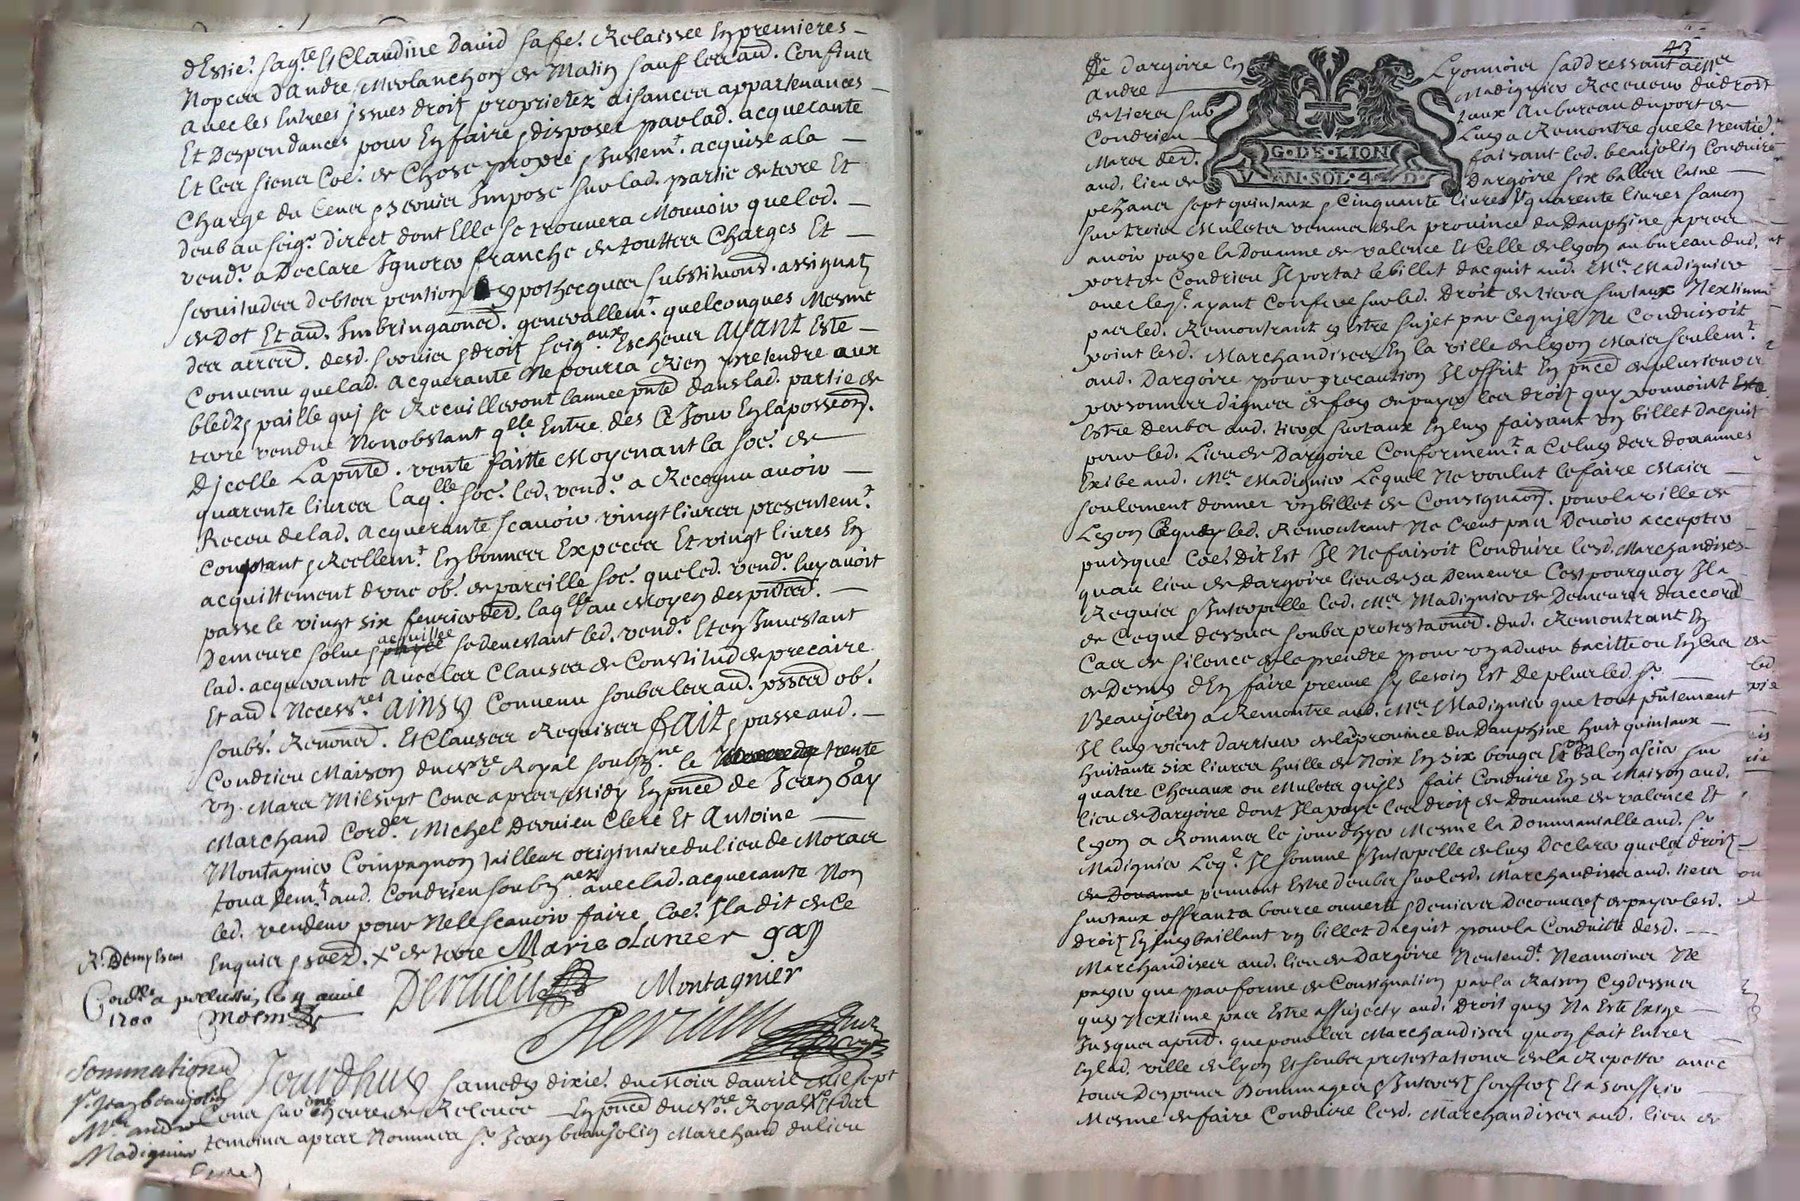 destie. sagte. et Claudine David sa fe. Relaissee en premieres
Nopces d'andre Merlanchon de Matin sauf les aud. Confins
avec les Entrees issues droitz proprietez aisances appartenances
Et Despendances pour En faire et disposer par lad. acquerante
Et les siens Coe. de Chose propre et Justemt. acquise a la
Charge du Cens et servis Impose sur lad. partie de terre Et
Deub au seigr. Direct dont Elle se trouvera Mouvoir que led.
vendr. a Declare Ignorer franche de touttes Charges Et
servitudes debtes pention hypothecques substituons. assignatz
de Dot Et aud. Imbringaoned. generallemt. quelconques Mesme
des arrerd. desd. servis et droitz seigaux Escheus ayant Este
Convenu que lad. acquerante Ne pourra Rien pretendre aux
bledz et paille quj se Recuilleront lannee pnte dans lad. partie de
terre vendue Nonobstant qlle Entre des Ce Jour En la possession.
Djcelle La pnted. vente faitte Moyenant la soe. de
quarente livres laqlle soe. led. vendr. a Recognu avoir
Receu de lad. acquerante scavoir vingt livres presentemt.
Comptant et Reellemt. En bonnes Especes Et vingt livres En
acquittement d'une ob. de pareille soe. que led. vendr. luy avoit
passe le vingt six fevrier derd. laqlle au Moyen des pnted.
Demeure solue et acquittee se devestant led. vendr. Et en Investant
lad. acquerante avec les Clauses de Constitud de precaire
Et aud. Necessres ainsy Convenu soubs les aud. pssed ob.
soubs. Renoned. Et Clauses Requises fait et passe aud.
Condrieu Maison du nre Royal soubzne le trente
un Mars Mil sept Cens apres Midy En pnce de Jean Gay
Marchand Corder Michel Dervieu Clerc Et Antoine
Montagnier Compagnon tailleur originaire du lieu de Mornas
tous Demt. aud. Condrieu soubznez avec lad. acquerante Non
led. vendeur pour Ne le scavoir faire Coe. Il a dit de Ce
Enquis et soed. X de terre Marie Olanier gay
Dervieu Montagnier
Dervieu
R. Demy sceau
Conlle a pellussin le 9 avril
1700
Sommation
sr. Jean beaujolin
Mre andre
Madignier
Jourdhuy samedy dixie. du Mois davril Mil sept
Cens sur Une heure de Relevee En pnce du nre Royal Et des
temoins apres Nommes sr. Jean beaujolin Marchand du lieu
43
De dargoire En Lyonnois saddressant a Mre
andre Madignier Receveur du droit
de tiers sur taux Au bureau du port de
Condrieu Luy a Remontre que le trentie.
Mars der. faisant led. beaujolin Conduire
aud. lieu de Dargoire six balles laine
G·DE·LION
V·EN·SOL·4·D·
pezans sept quintaux et Cinquante livres Et quarente livres savon
sur trois Mulets venues de la province du Dauphine apres
avoir paye la Douanne de valence Et Celle de lyon au bureau dud.
port de Condrieu Il porta le billet dacquit aud. Mre. Madignier
avec leql. ayant Confere sur led. Droit de tiers sur taux
pas led. Remontrant y Estre sujet par Ce quil Ne Conduisoit
point lesd. Marchandises En la ville de lyon Mais seulemt.
aud. Dargoire pour precaution Il offrit En pnce de plusieurs
personnes dignes de foy de payer les droitz quy pouvoint
Estre deubs aud. tiers surtaux En luy faisant un billet dacquit
pour led. Lieu de Dargoire Conformemt. a Celuy des douannes
Exibe aud. Mre Madignier Lequel Ne voulut le faire Mais
seulement donner un billet de Consignaon. pour la ville de
Lyon Ce que led. Remontrant Ne Creut pas Devoir accepter
puisque Coe. Dit Est Il Ne faisoit Conduire lesd. Marchandises
quau lieu de Dargoire lieu de sa Demeure Cest pourquoy Il a
Requis et Interpelle led. Mre. Madignier de Demeurer daccord
de Ce que dessus soubs protestaoned. dud. Remontrant En
Cas de silence de la prendre pour un adveu tacitte ou En Cas
de Deny dEn faire preuve sy besoin Est De plus led. sr.
Beaujolin a Remontre aud. Mre Madignier que tout pntement
Il luy vient d'arriver de la province du Dauphine huit quintaux
huitante six livres huille de Noix En six bouges Et un balon acier sur
quatre Chevaux ou Mulets quils fait Conduire En sa Maison aud.
lieu de Dargoire dont Il a paye les droitz de Douanne de valence Et
Lyon a Romans le jour d'hyer Mesme la Dommanialle aud. sr
Madignier Leql. Il somme et Interpelle de luy Declarer quels droitz
peuvent Estre deubs sur lesd. Marchandises aud. tiers
surtaux offrant a bource ouverte et Deniers Decouvertz de payer lesd.
droitz En luy baillant un billet Dacquit pour la Conduitte desd.
Marchandises aud. lieu de Dargoire Nentendt. Neamoins Ne
payer que par forme de Consignation par la Raison Cydessus
quy Nextime pas Estre assujecty aud. Droit quy Na Este Exige
Jusques a pnt. que pour les Marchandises quon fait Entrer
En lad. ville de lyon Et soubs protestations de la Repetter avec
tous Despens Dommages et Interestz soufferts Et a souffrir
Mesme de faire Conduire lesd. Marchandises aud. lieu de